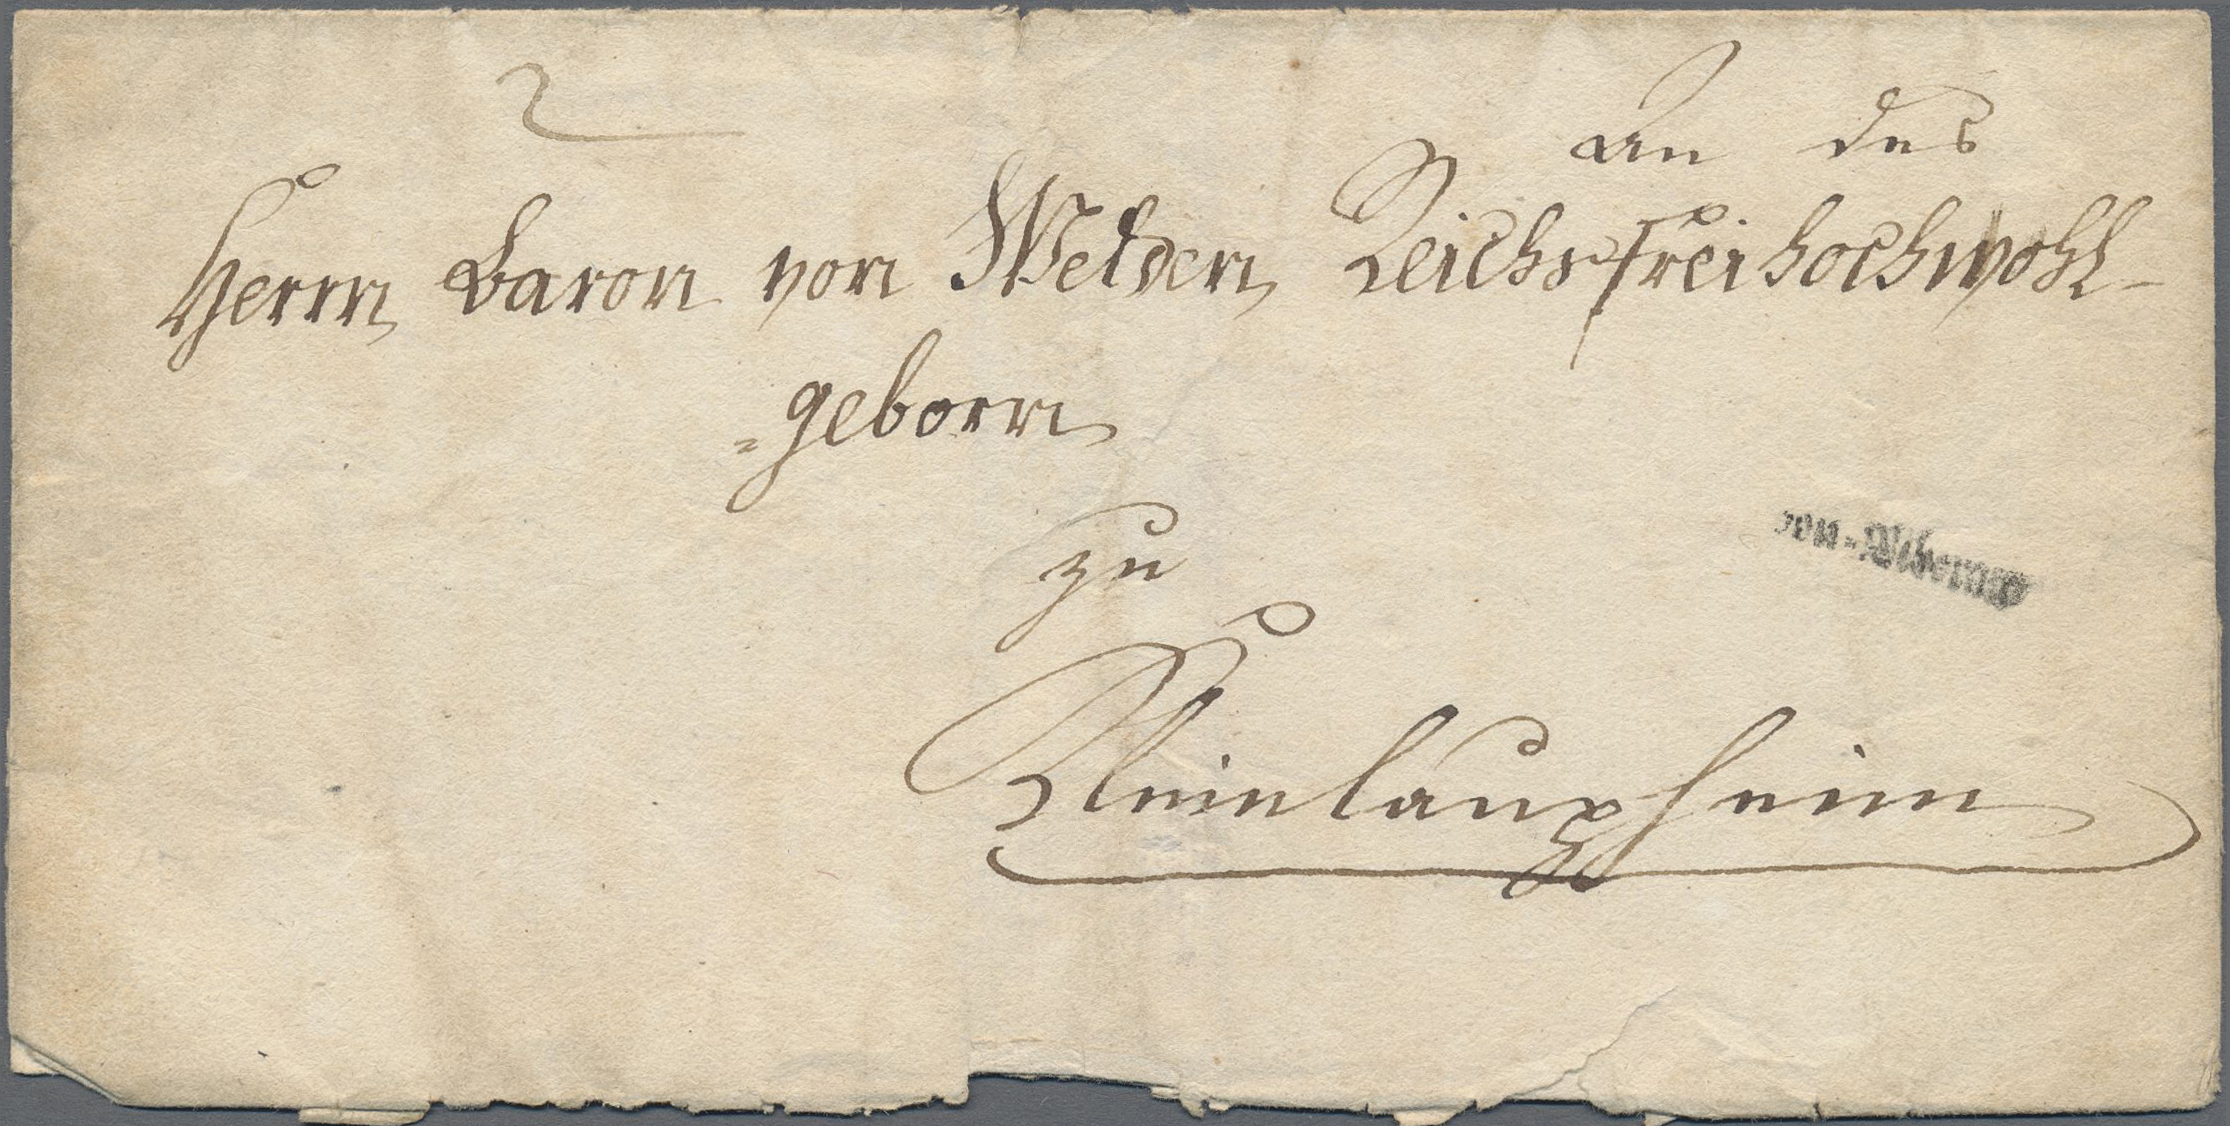 An des
Herrn Baron von Welden Reichsfreihochwohl-
=geborn
zu
Kleinlaupheim
von-Biberach